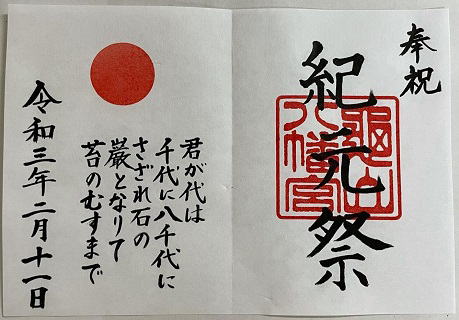 奉祝
紀元祭
亀山
八幡宮
君が代は
千代に八千代に
さざれ石の
巌となりて
苔のむすまで
令和三年二月十一日